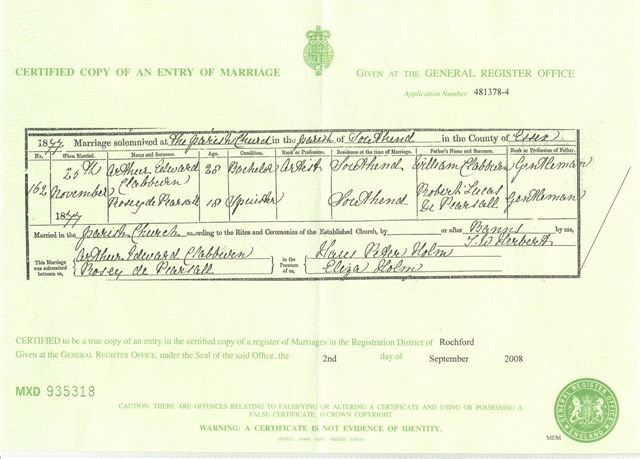 CERTIFIED COPY OF AN ENTRY OF MARRIAGE
GIVEN AT THE GENERAL REGISTER OFFICE
Application Number 481378-4
1877. Marriage solemnized at The Parish Church in the parish of Southend in the County of Essex
No. When Married. Name and Surname. Age. Condition. Rank or Profession. Residence at the time of Marriage. Father's Name and Surname. Rank or Profession of Father.
162 25th November 1877
Arthur Edward Clabburn Bachelor Artist Southend William Clabburn Gentleman
Rosey de Pearsall Spinster Southend Robert Lucas De Pearsall Gentleman
Married in the Parish Church according to the Rites and Ceremonies of the Established Church, by or after Banns by me,
Herbert
This Marriage was solemnized between us,
Arthur Edward Clabburn
Rosey de Pearsall
in the Presence of us,
Hans Peter Holm
Eliza Holm
CERTIFIED to be a true copy of an entry in the certified copy of a register of Marriages in the Registration District of Rochford
Given at the GENERAL REGISTER OFFICE, under the Seal of the said Office, the 2nd day of September 2008
MXD 935318
CAUTION: THERE ARE OFFENCES RELATING TO FALSIFYING OR ALTERING A CERTIFICATE AND USING OR POSSESSING A
FALSE CERTIFICATE. © CROWN COPYRIGHT
WARNING: A CERTIFICATE IS NOT EVIDENCE OF IDENTITY.
GENERAL REGISTER OFFICE
ENGLAND
MEM